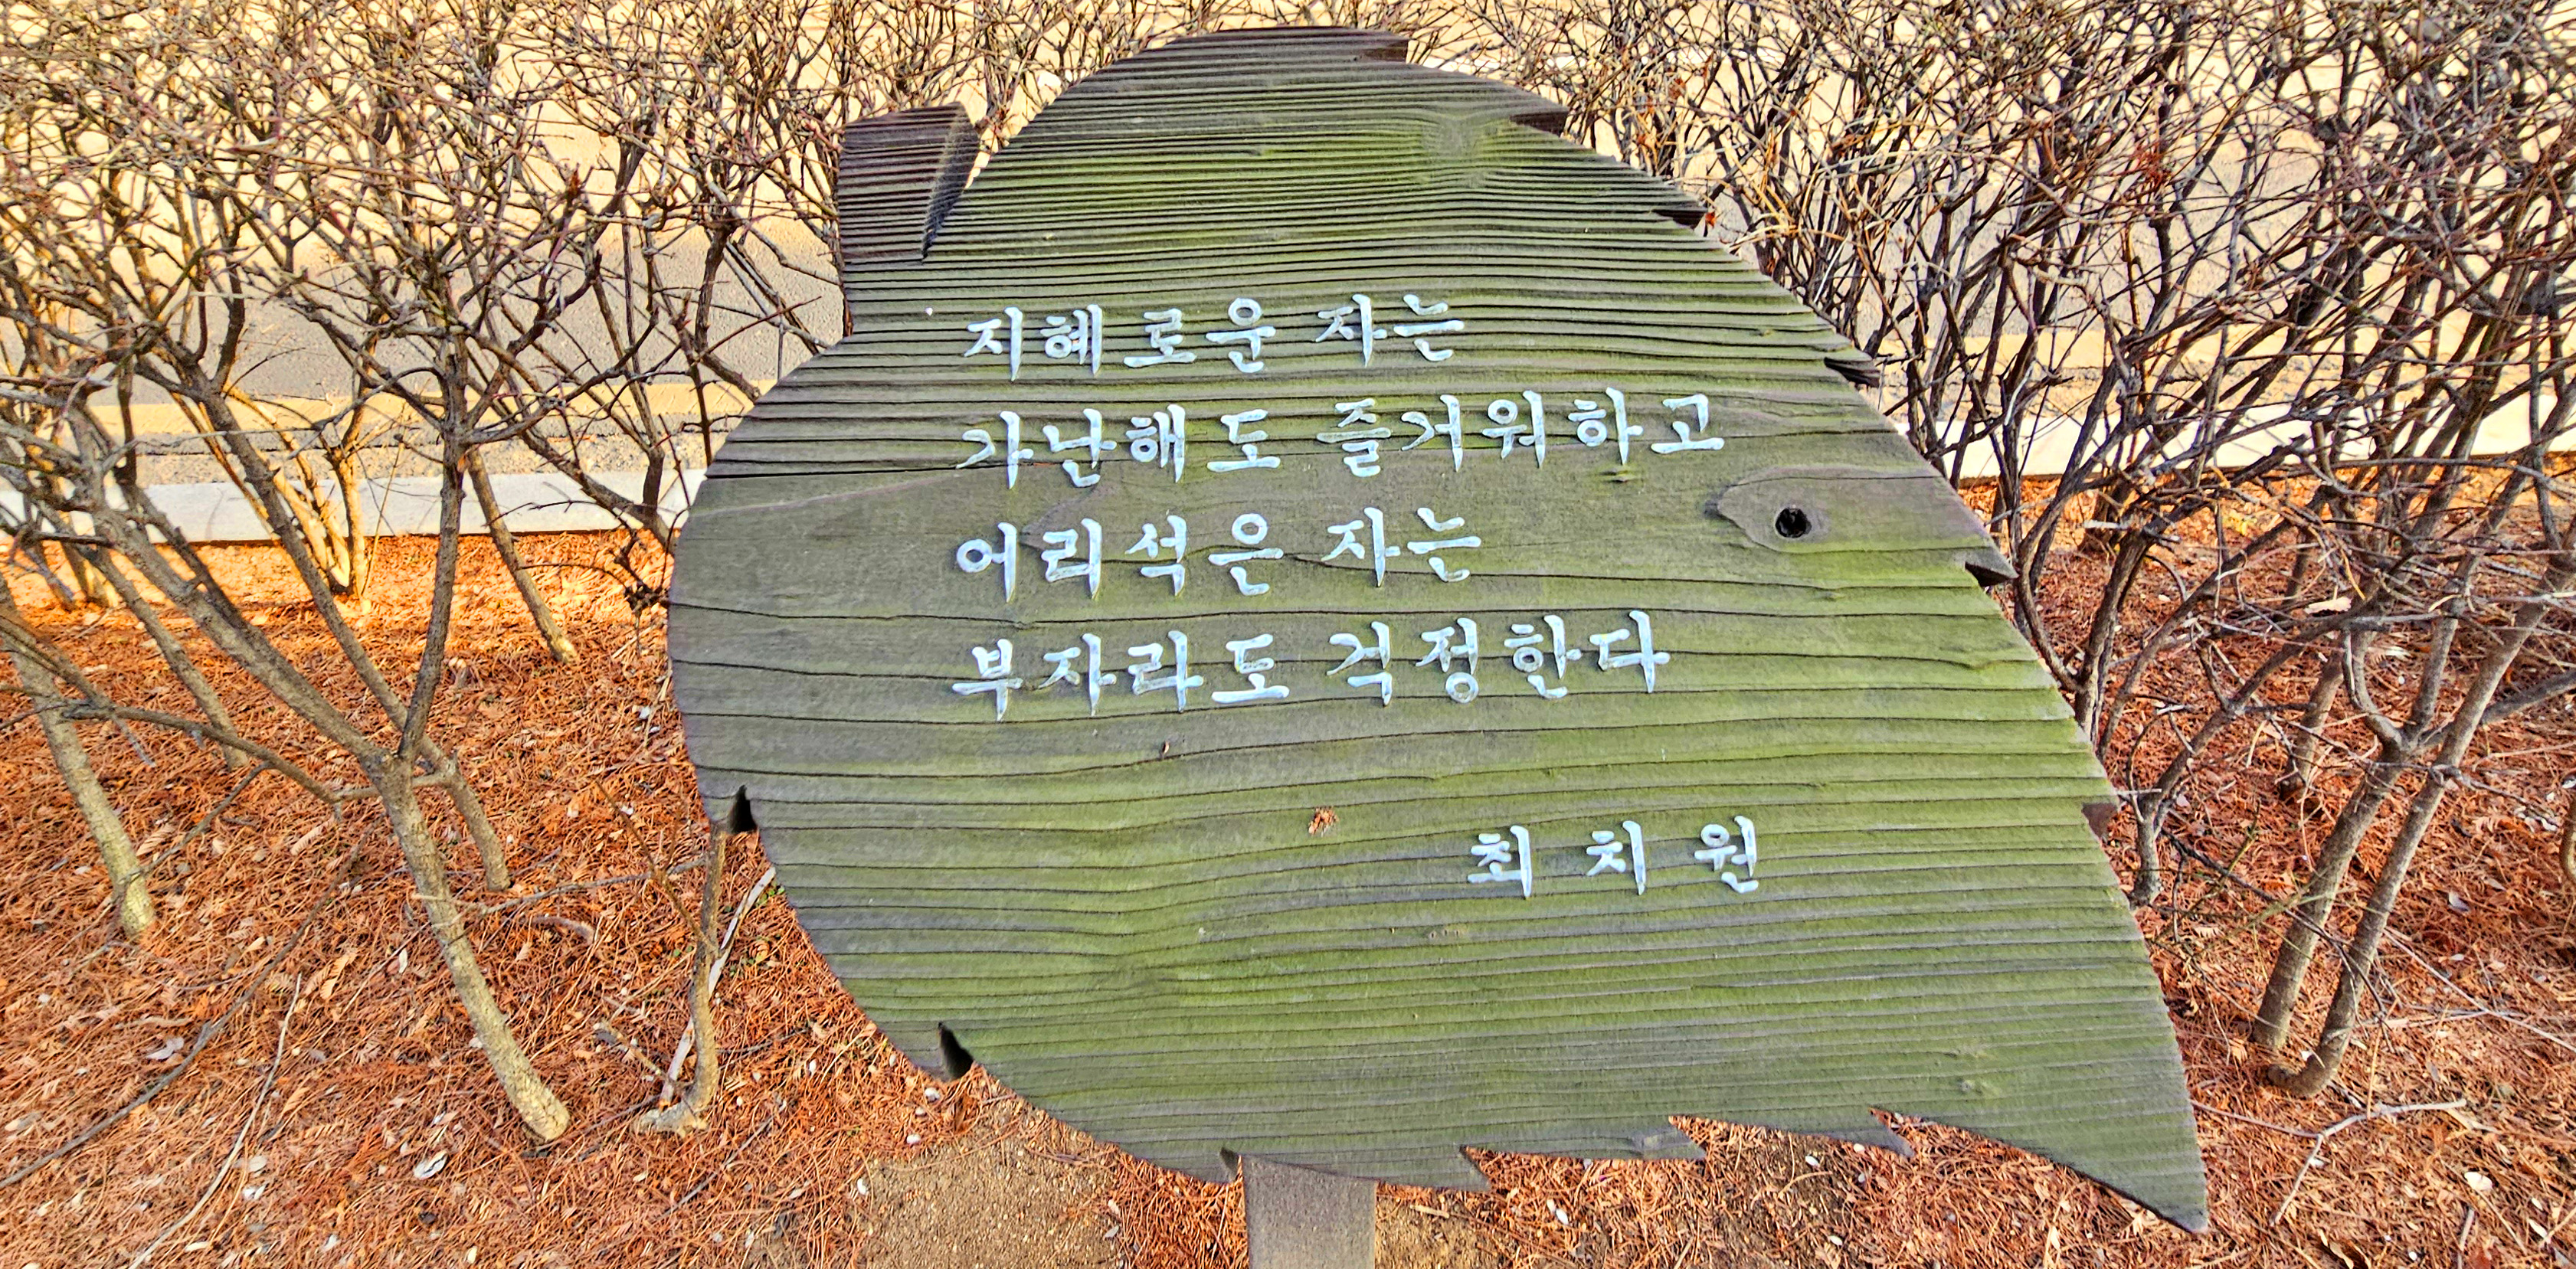 지혜로운 자는
가난해도 즐거워하고
어리석은 자는
부자라도 걱정한다
최치원